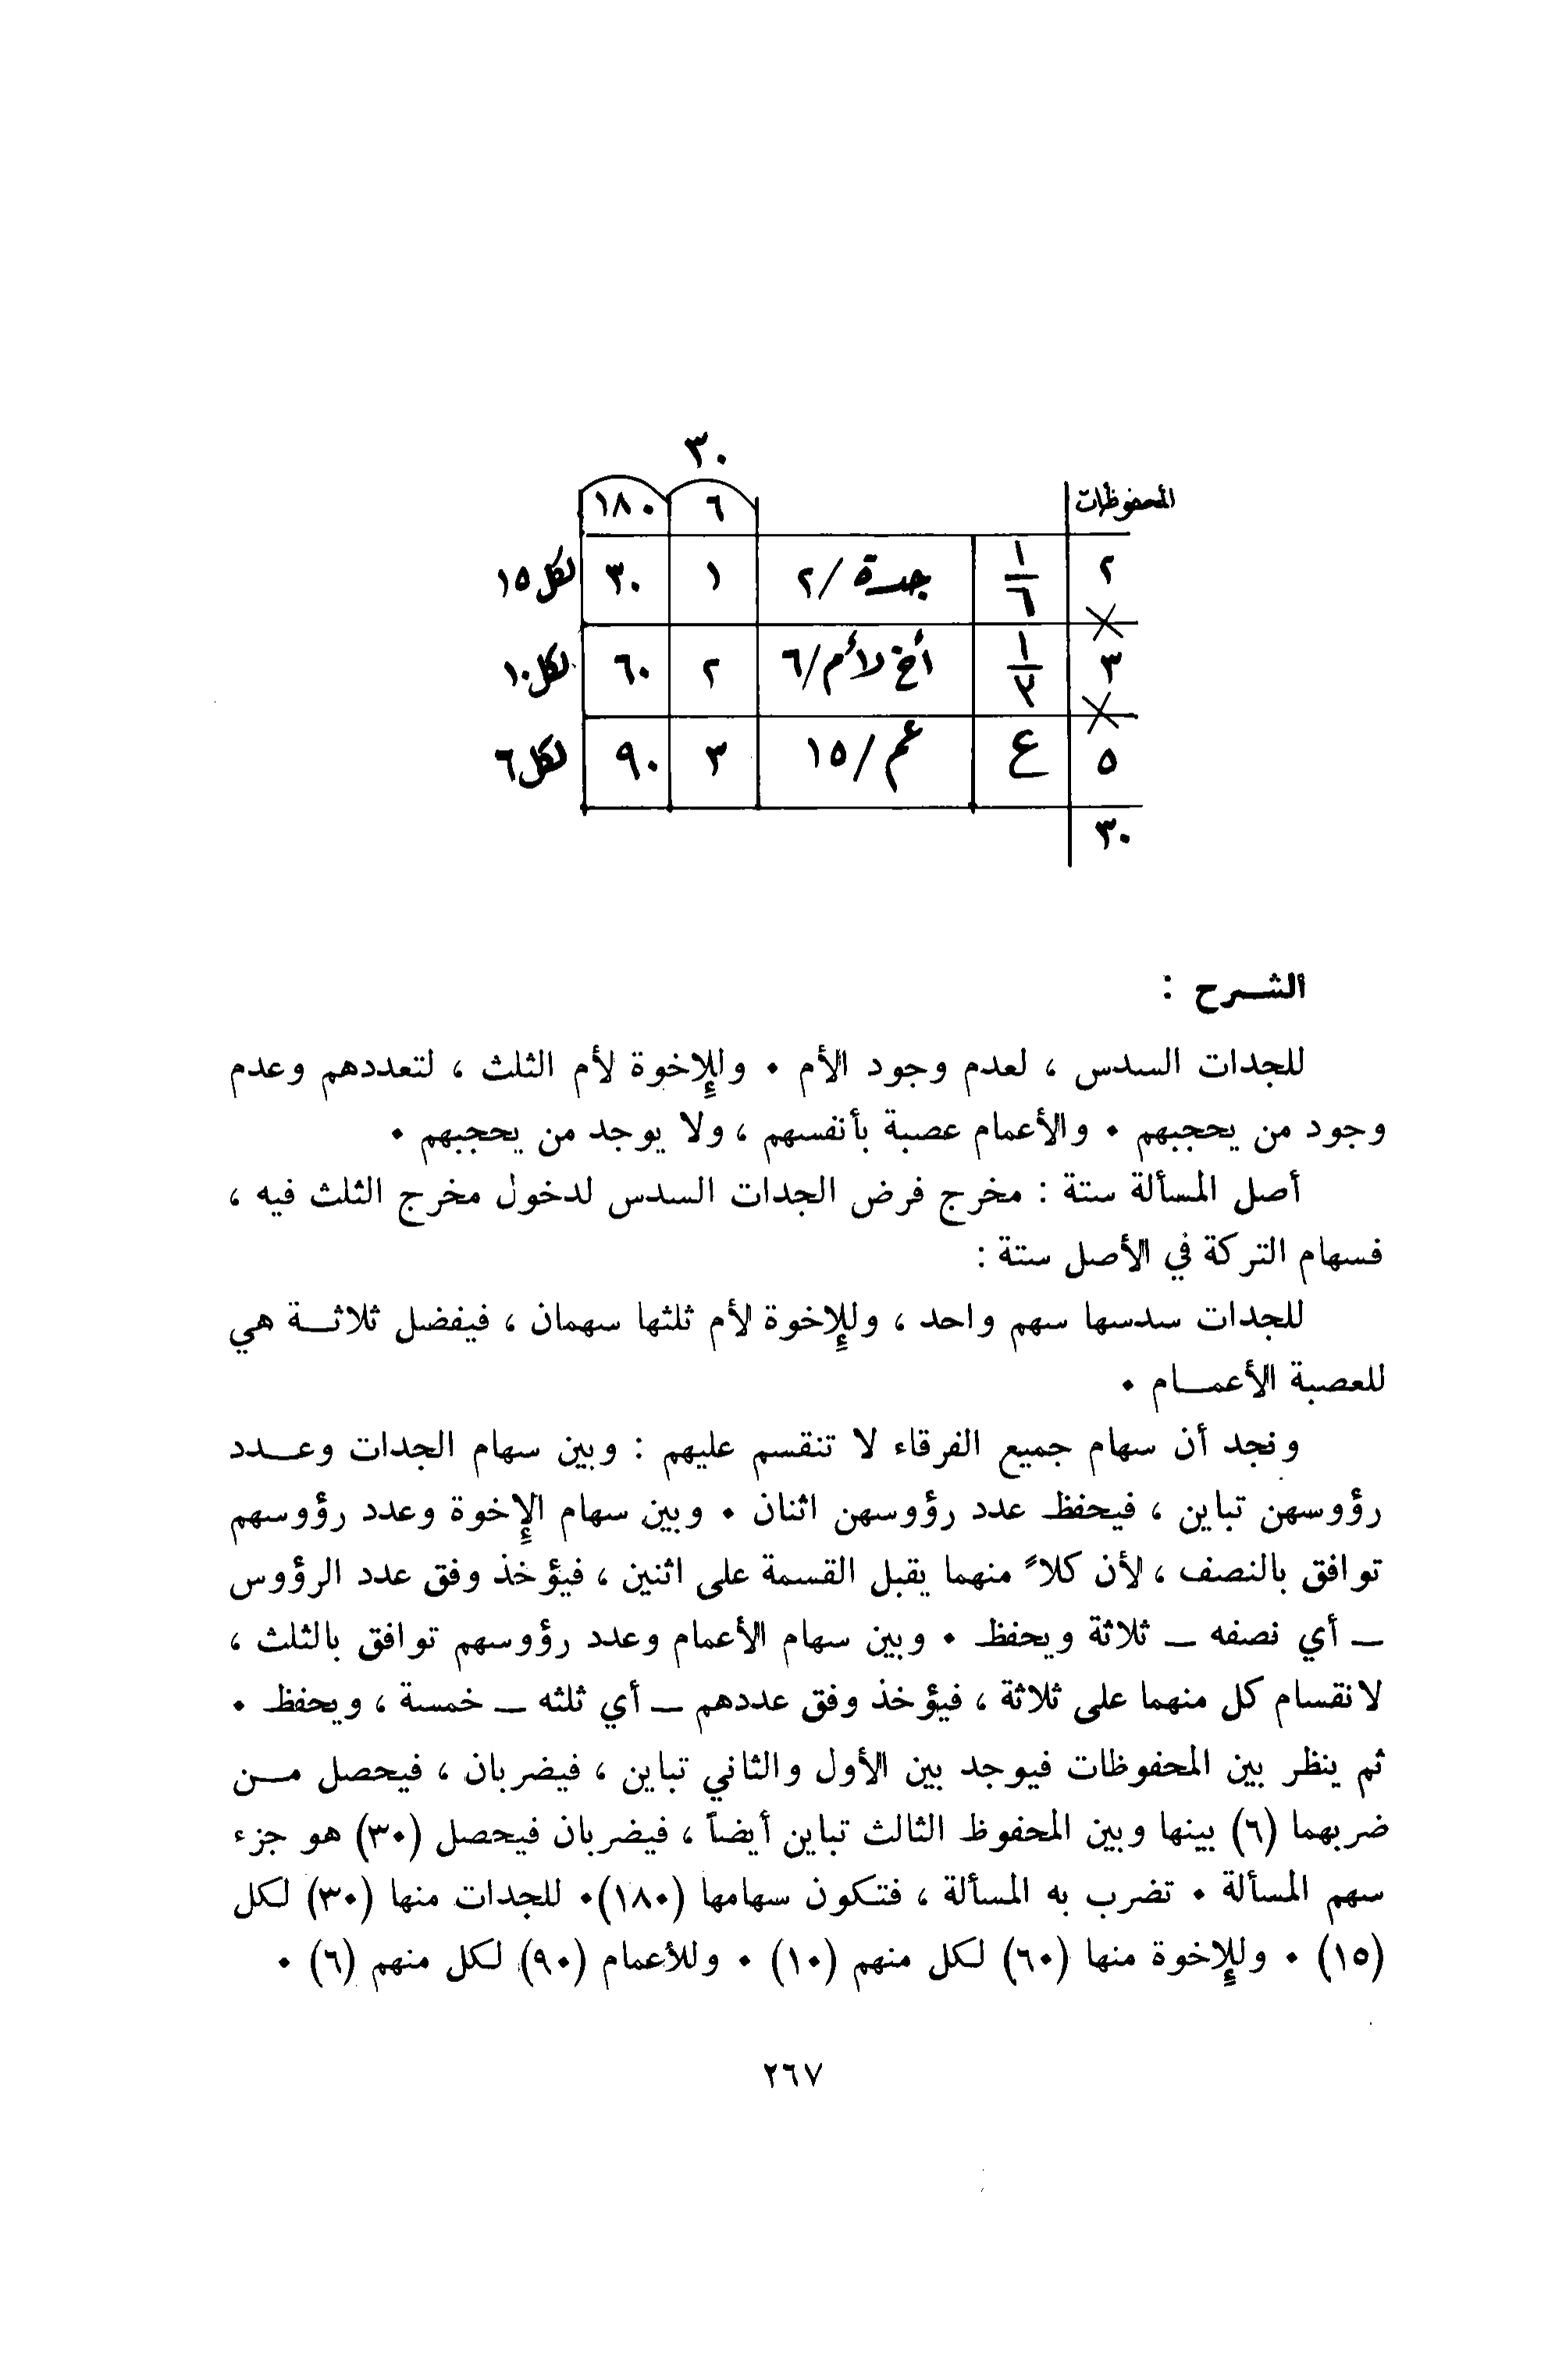 ٣٠
المحفوظات ٦ ١٨٠
٢ ١/٦ جدة / ٢ ١ ٣٠ لكل ١٥
٣ ١/٣ أخ لأم / ٦ ٢ ٦٠ لكل ١٠
٥ ع عم / ١٥ ٣ ٩٠ لكل ٦
٣٠
الشــرح :
للجدات السدس ، لعدم وجود الأم ٠ وللإخوة لأم الثلث ، لتعددهم وعدم
وجود من يحجبهم ٠ والأعمام عصبة بأنفسهم ، ولا يوجد من يحجبهم ٠
أصل المسألة ستة : مخرج فرض الجدات السدس لدخول مخرج الثلث فيه ،
فسهام التركة في الأصل ستة :
للجدات سدسها سهم واحد ، وللإخوة لأم ثلثها سهمان ، فيفضل ثلاثــة هي
للعصبة الأعمــام ٠
ونجد أن سهام جميع الفرقاء لا تنقسم عليهم : وبين سهام الجدات وعــدد
رؤوسهن تباين ، فيحفظ عدد رؤوسهن اثنان ٠ وبين سهام الإخوة وعدد رؤوسهم
توافق بالنصف ، لأن كلاً منهما يقبل القسمة على اثنين ، فيؤخذ وفق عدد الرؤوس
ــ أي نصفه ــ ثلاثة ويحفظ ٠ وبين سهام الأعمام وعدد رؤوسهم توافق بالثلث ،
لانقسام كل منهما على ثلاثة ، فيؤخذ وفق عددهم ــ أي ثلثه ــ خمسة ، ويحفظ ٠
ثم ينظر بين المحفوظات فيوجد بين الأول والثاني تباين ، فيضربان ، فيحصل مــن
ضربهما (٦) بينها وبين المحفوظ الثالث تباين أيضاً ، فيضربان فيحصل (٣٠) هو جزء
سهم المسألة ٠ تضرب به المسألة ، فتكون سهامها (١٨٠)٠ للجدات منها (٣٠) لكل
(١٥) ٠ وللإخوة منها (٦٠) لكل منهم (١٠) ٠ وللأعمام (٩٠) لكل منهم (٦) ٠
٢٦٧